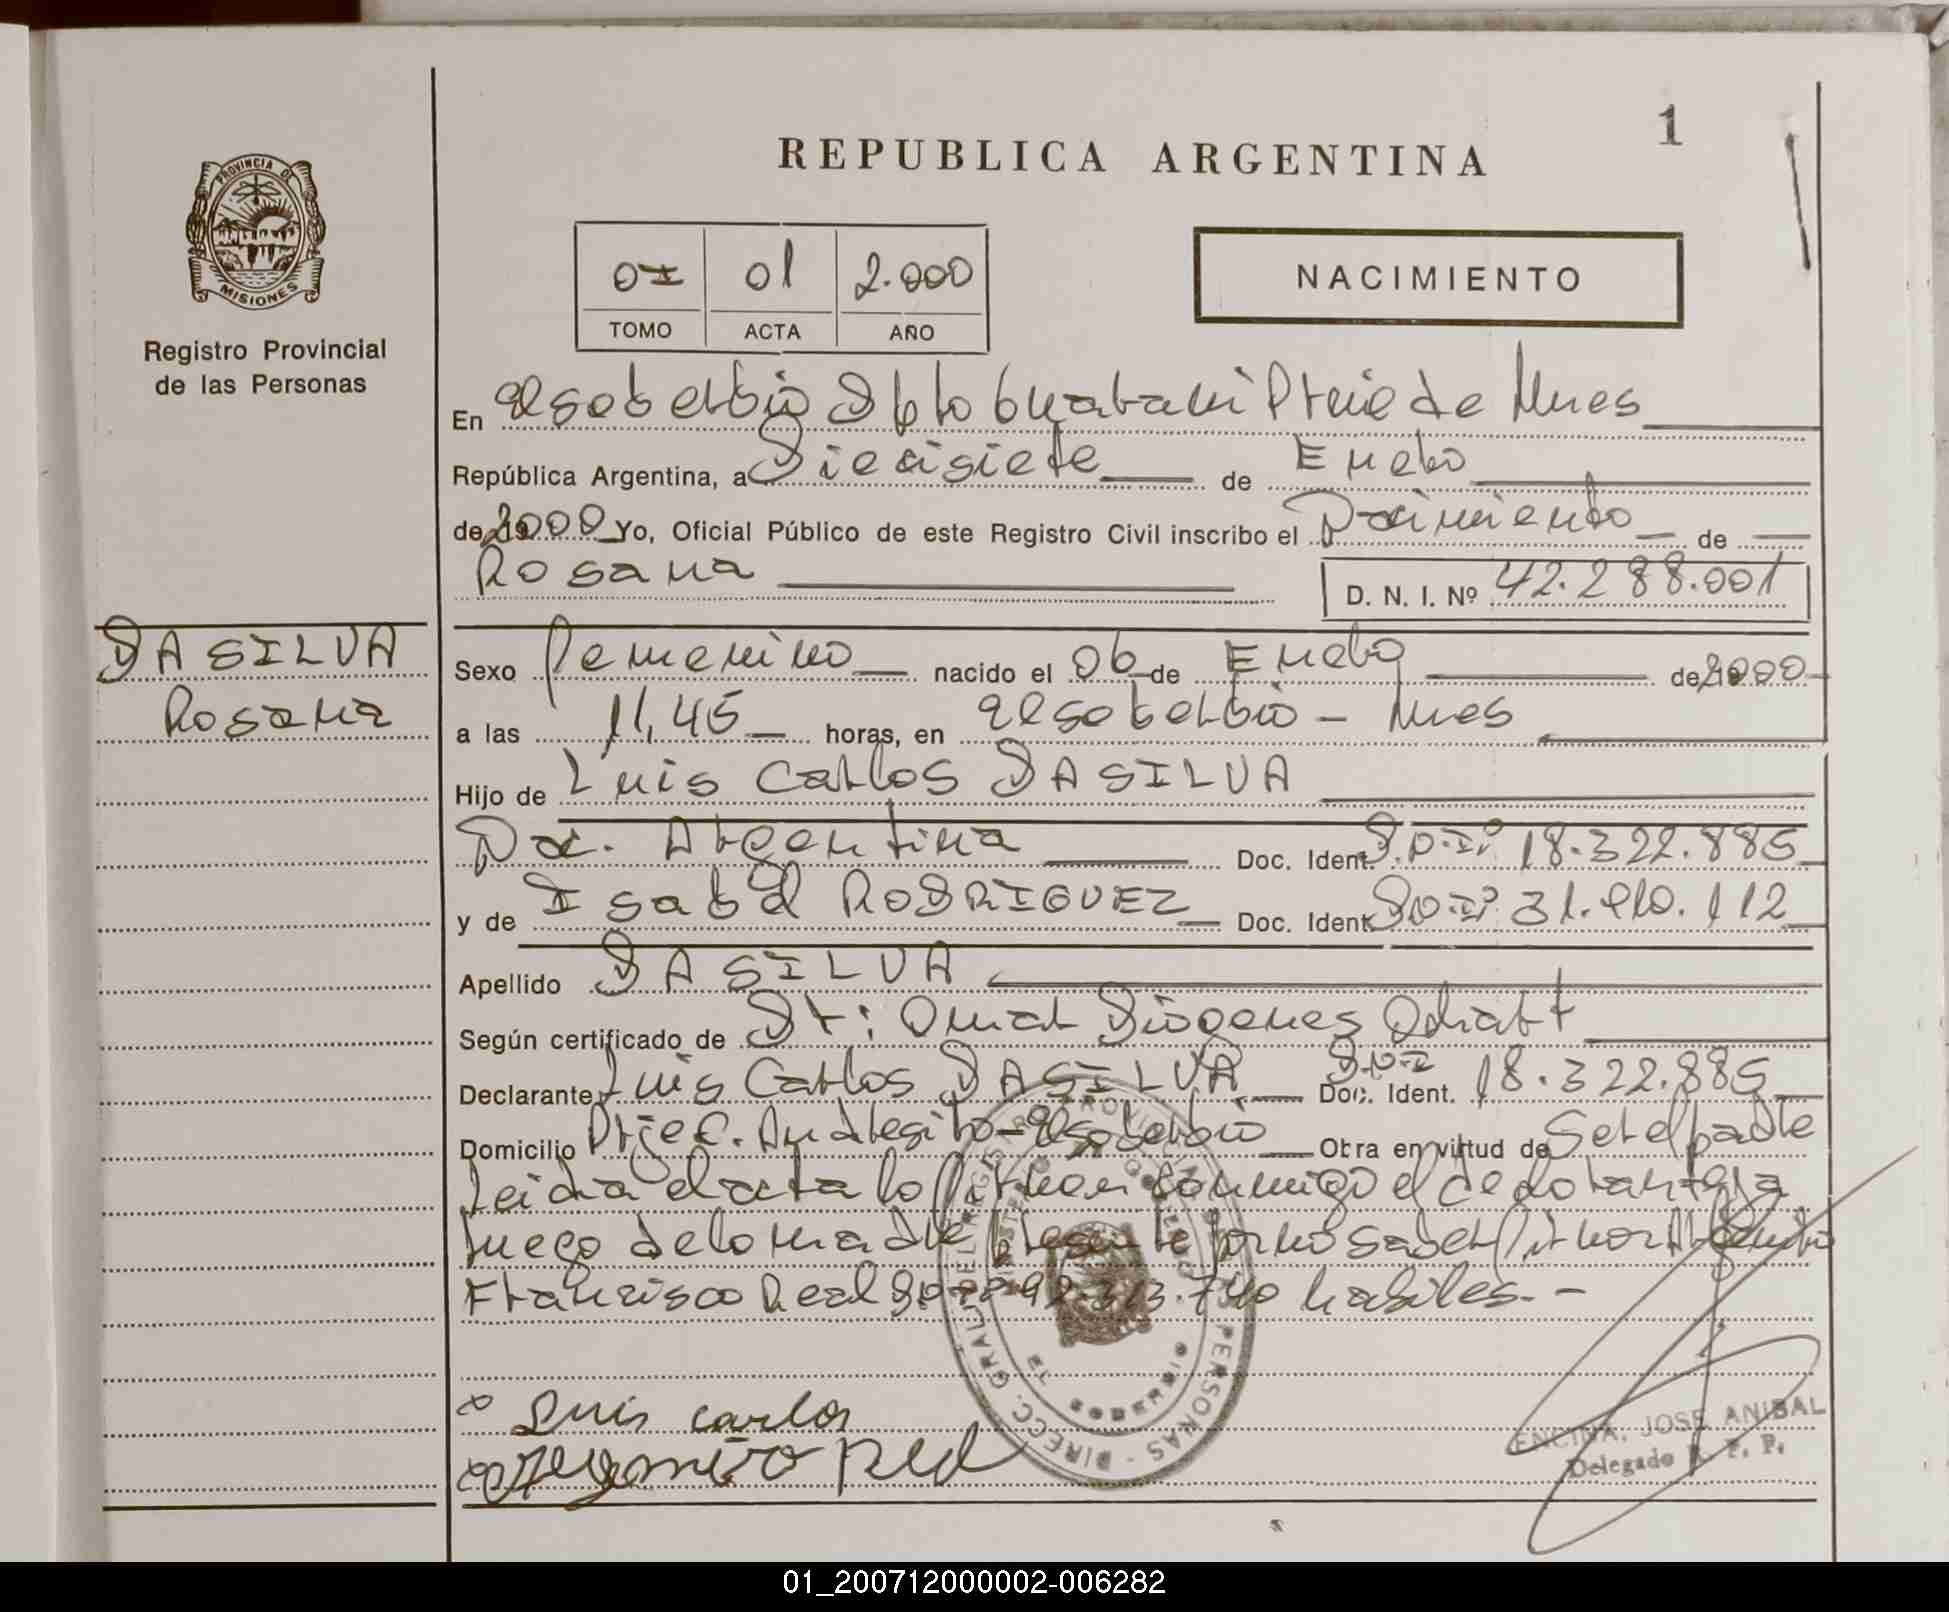 1
REPUBLICA ARGENTINA
PROVINCIA DE
MISIONES
Registro Provincial
de las Personas
01 01 2.000
TOMO ACTA AÑO
NACIMIENTO
En El soberbio Dpto Guarani Pcia de Mnes
República Argentina, a Diecisiete de Enero
de 2000 Yo, Oficial Público de este Registro Civil inscribo el Nacimiento de
Rosana
D. N. I. Nº 42.288.001
DA SILVA
Rosana
Sexo Femenino nacido el 06 de Enero de 2000
a las 11,45 horas, en El soberbio - Mnes
Hijo de Luis Carlos DA SILVA
Nac. Argentina Doc. Ident. D.N.I: 18.322.885
y de Isabel RODRIGUEZ Doc. Ident. D.N.I: 31.910.112
Apellido DA SILVA
Según certificado de Dr: Omar Diogenes Odriatt
Declarante Luis Carlos DA SILVA Doc. Ident. D.N.I 18.322.885
Domicilio Andresito - El soberbio Obra en virtud de Ser el padre
Leida el acta la firman conmigo el declarante a
ruego de la madre presente por no saber firmar Argemiro
Francisco Real D.N.I: 92.313.740 habiles.-
Luis carlos
Argemiro Real
DIRECC. GRAL. DEL REGISTRO PROVINCIAL DE LAS PERSONAS
EL SOBERBIO
ENCINA, JOSE ANIBAL
Delegado R. P. P.
01_200712000002-006282